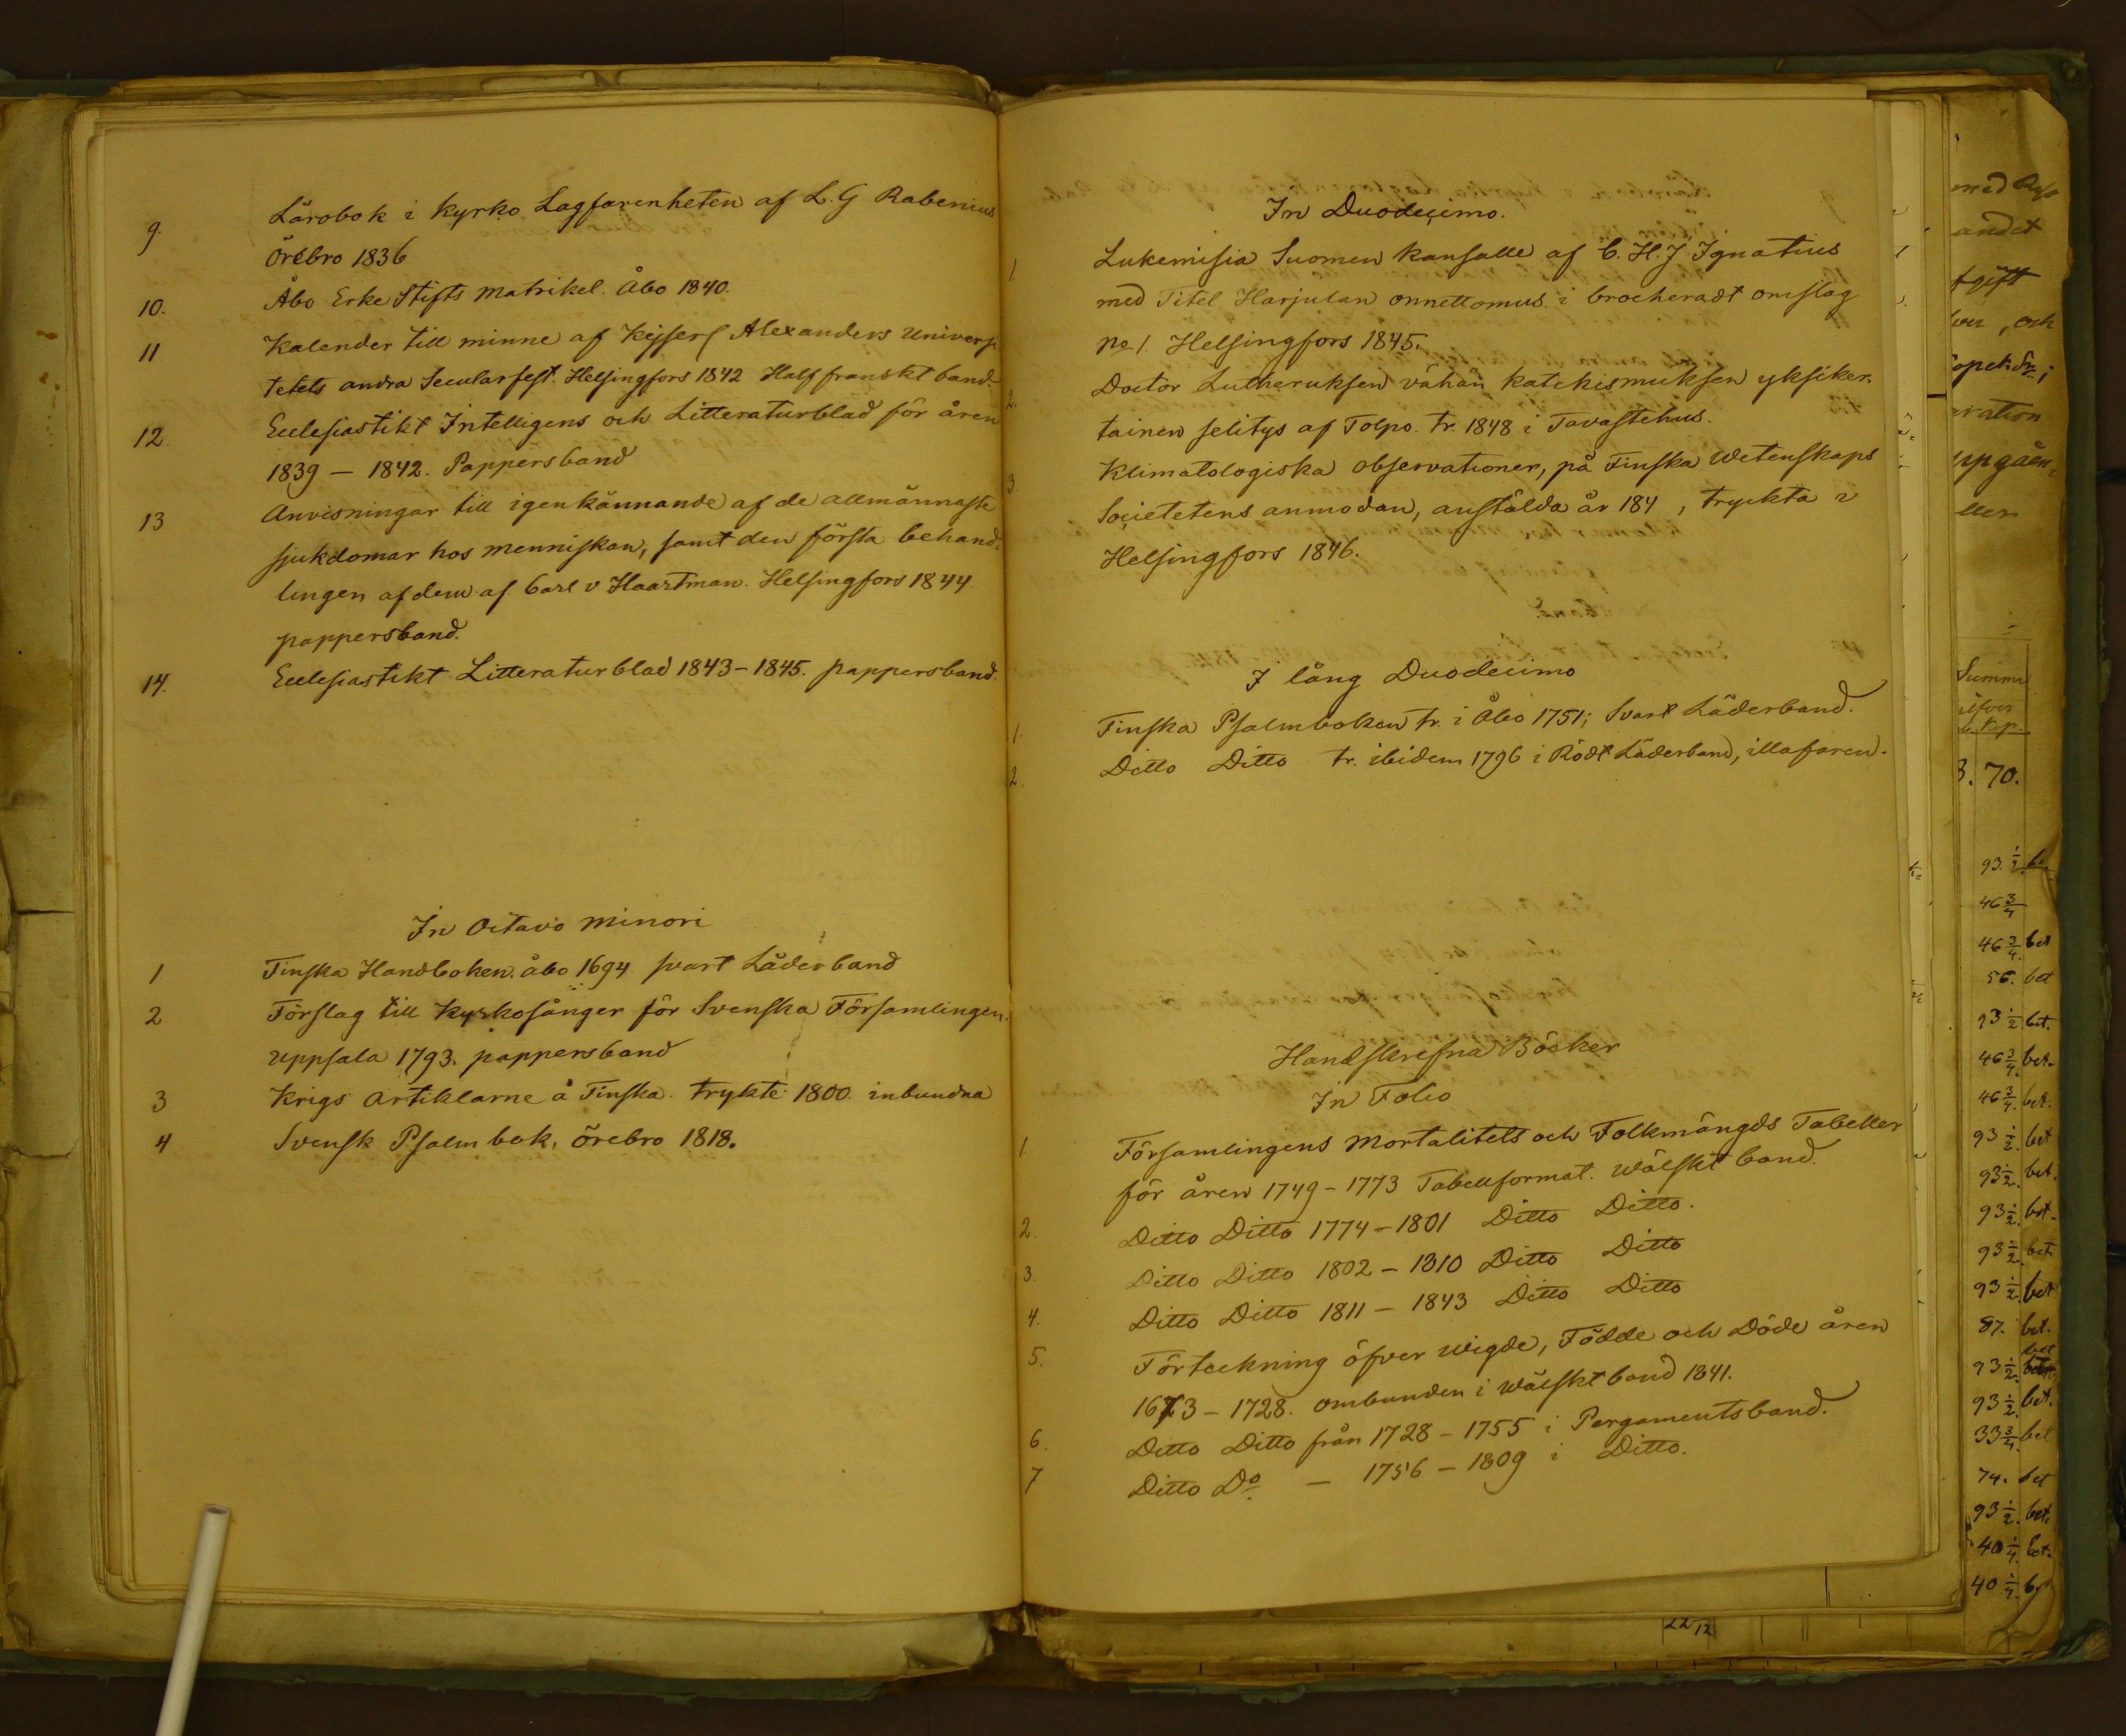 9. Lärobok i Kyrko Lagfarenheten af L. G Rabenius
Örebro 1836
10. Åbo Erke Stifts Matrikel. Åbo 1840.
11 Kalender till minne af Kejserl Alexanders Universi
tetets andra Secularfest. Helsingfors 1842 Half franskt band
12. Ecclesiastikt Intelligens och Litteraturblad för åren
1839 – 1842. Pappersband
13 Anvisningar till igenkännande af de allmännaste
sjukdomar hos menniskan, samt den första behand-
lingen af dem af Carl v Haartman. Helsingfors 1844.
pappersband.
14. Ecclesiastikt Litteraturblad 1843–1845. pappersband.
In Octavo minori
1 Finska Handboken. åbo 1694 svart Läderband
2 Förslag till Kyrkosånger för Svenska Församlingen.
Uppsala 1793. pappersband
3 Krigs Artiklarne å Finska. trykte 1800. inbundna
4 Svensk Psalmbok. Örebro 1818.
In Duodecimo.
1. Lukemisia Suomen kansalle af C. H. J Ignatius
med Titel Harjulan onnettomus i brocheradt omslag
No 1. Helsingfors 1845.
2. Doctor Lutheruksen vähän katekismuksen yksiker.
tainen selitys af Tolpo. tr. 1848 i Tavastehus.
3 Klimatologiska observationer, på Finska Wetenskaps
Societetens anmodan, anstälda år 184 , tryckta i
Helsingfors 1846.
I lång Duodecimo
1. Finska Psalmboken tr. i Åbo 1751; Svart Läderband.
2. Ditto Ditto tr. ibidem 1796 i Rödt Läderband, illafaren.
Handskrefna Böcker
In Folio
1 Församlingens Mortalitets och Folkmängds Tabeller
för åren 1749–1773 Tabellformat. wälskt band.
2. Ditto Ditto 1774–1801 Ditto Ditto.
3 Ditto Ditto 1802–1810 Ditto Ditto
4. Ditto Ditto 1811–1843 Ditto Ditto
5. Förteckning öfver wigde, Födde och Döde åren
1673–1728. ombunden i wälskt band 1841.
6. Ditto Ditto från 1728–1755 i Pergamentsband.
7 Ditto Do – 1756–1809 i Ditto.
andet
och
Summa
70.
93 1/2
46 3/4
46 3/4 bet
56. bet
93 1/2 bet.
46 3/4 bet.
46 3/4. bet.
93 1/2. bet
93 1/2. bet.
93 1/2. bet.
93 1/2. bet
93 1/2. bet
87. bet.
93 1/2. bet
93 1/2. bet.
33 3/4. bet
74. bet
93 1/2. bet.
40 1/4. bet.
40 1/4.